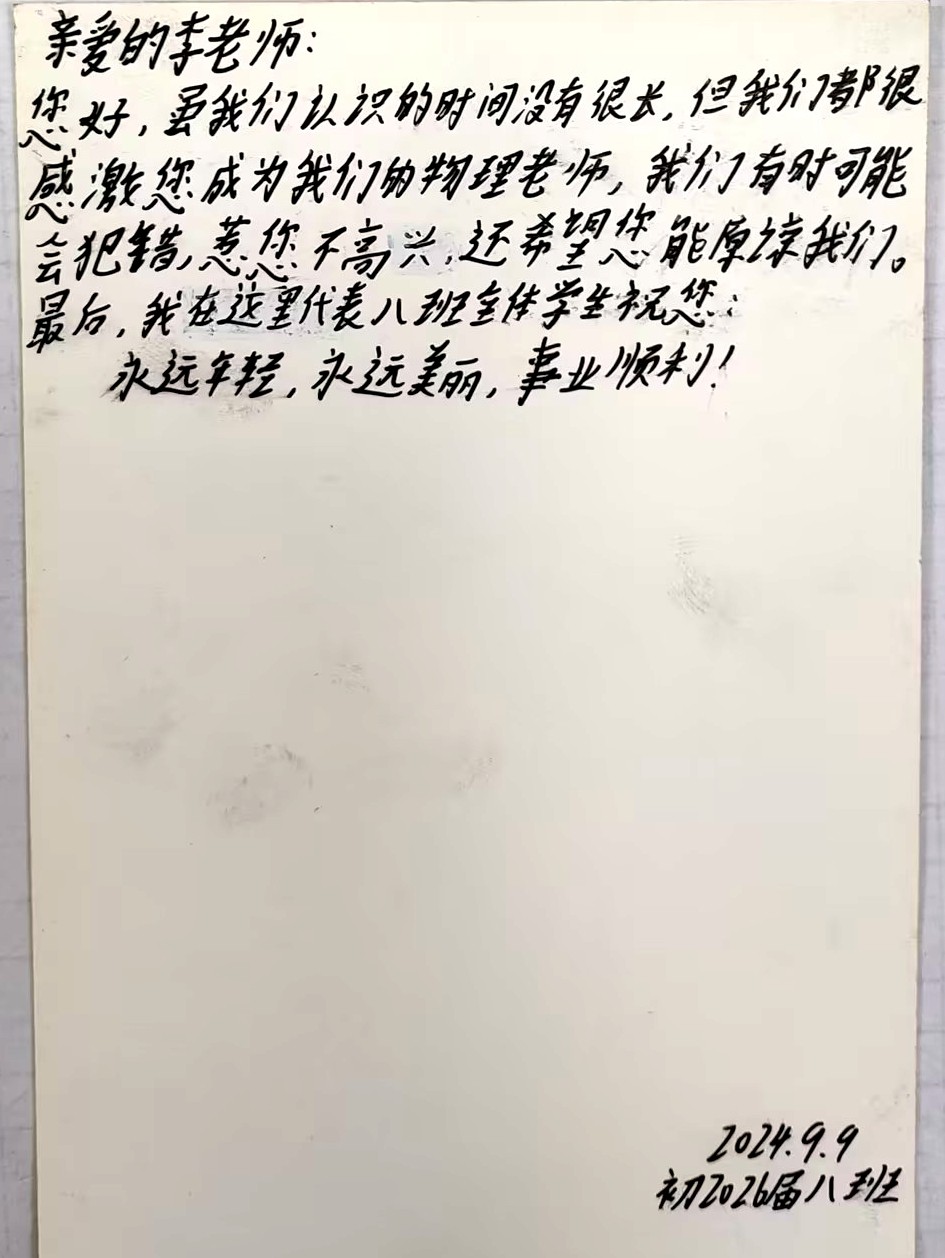 亲爱的李老师：
您好，虽我们认识的时间没有很长，但我们都很
感激您成为我们的物理老师，我们有时可能
会犯错，惹您不高兴，还希望您能原谅我们。
最后，我在这里代表八班全体学生祝您：
永远年轻，永远美丽，事业顺利！
2024.9.9
初2026届八班